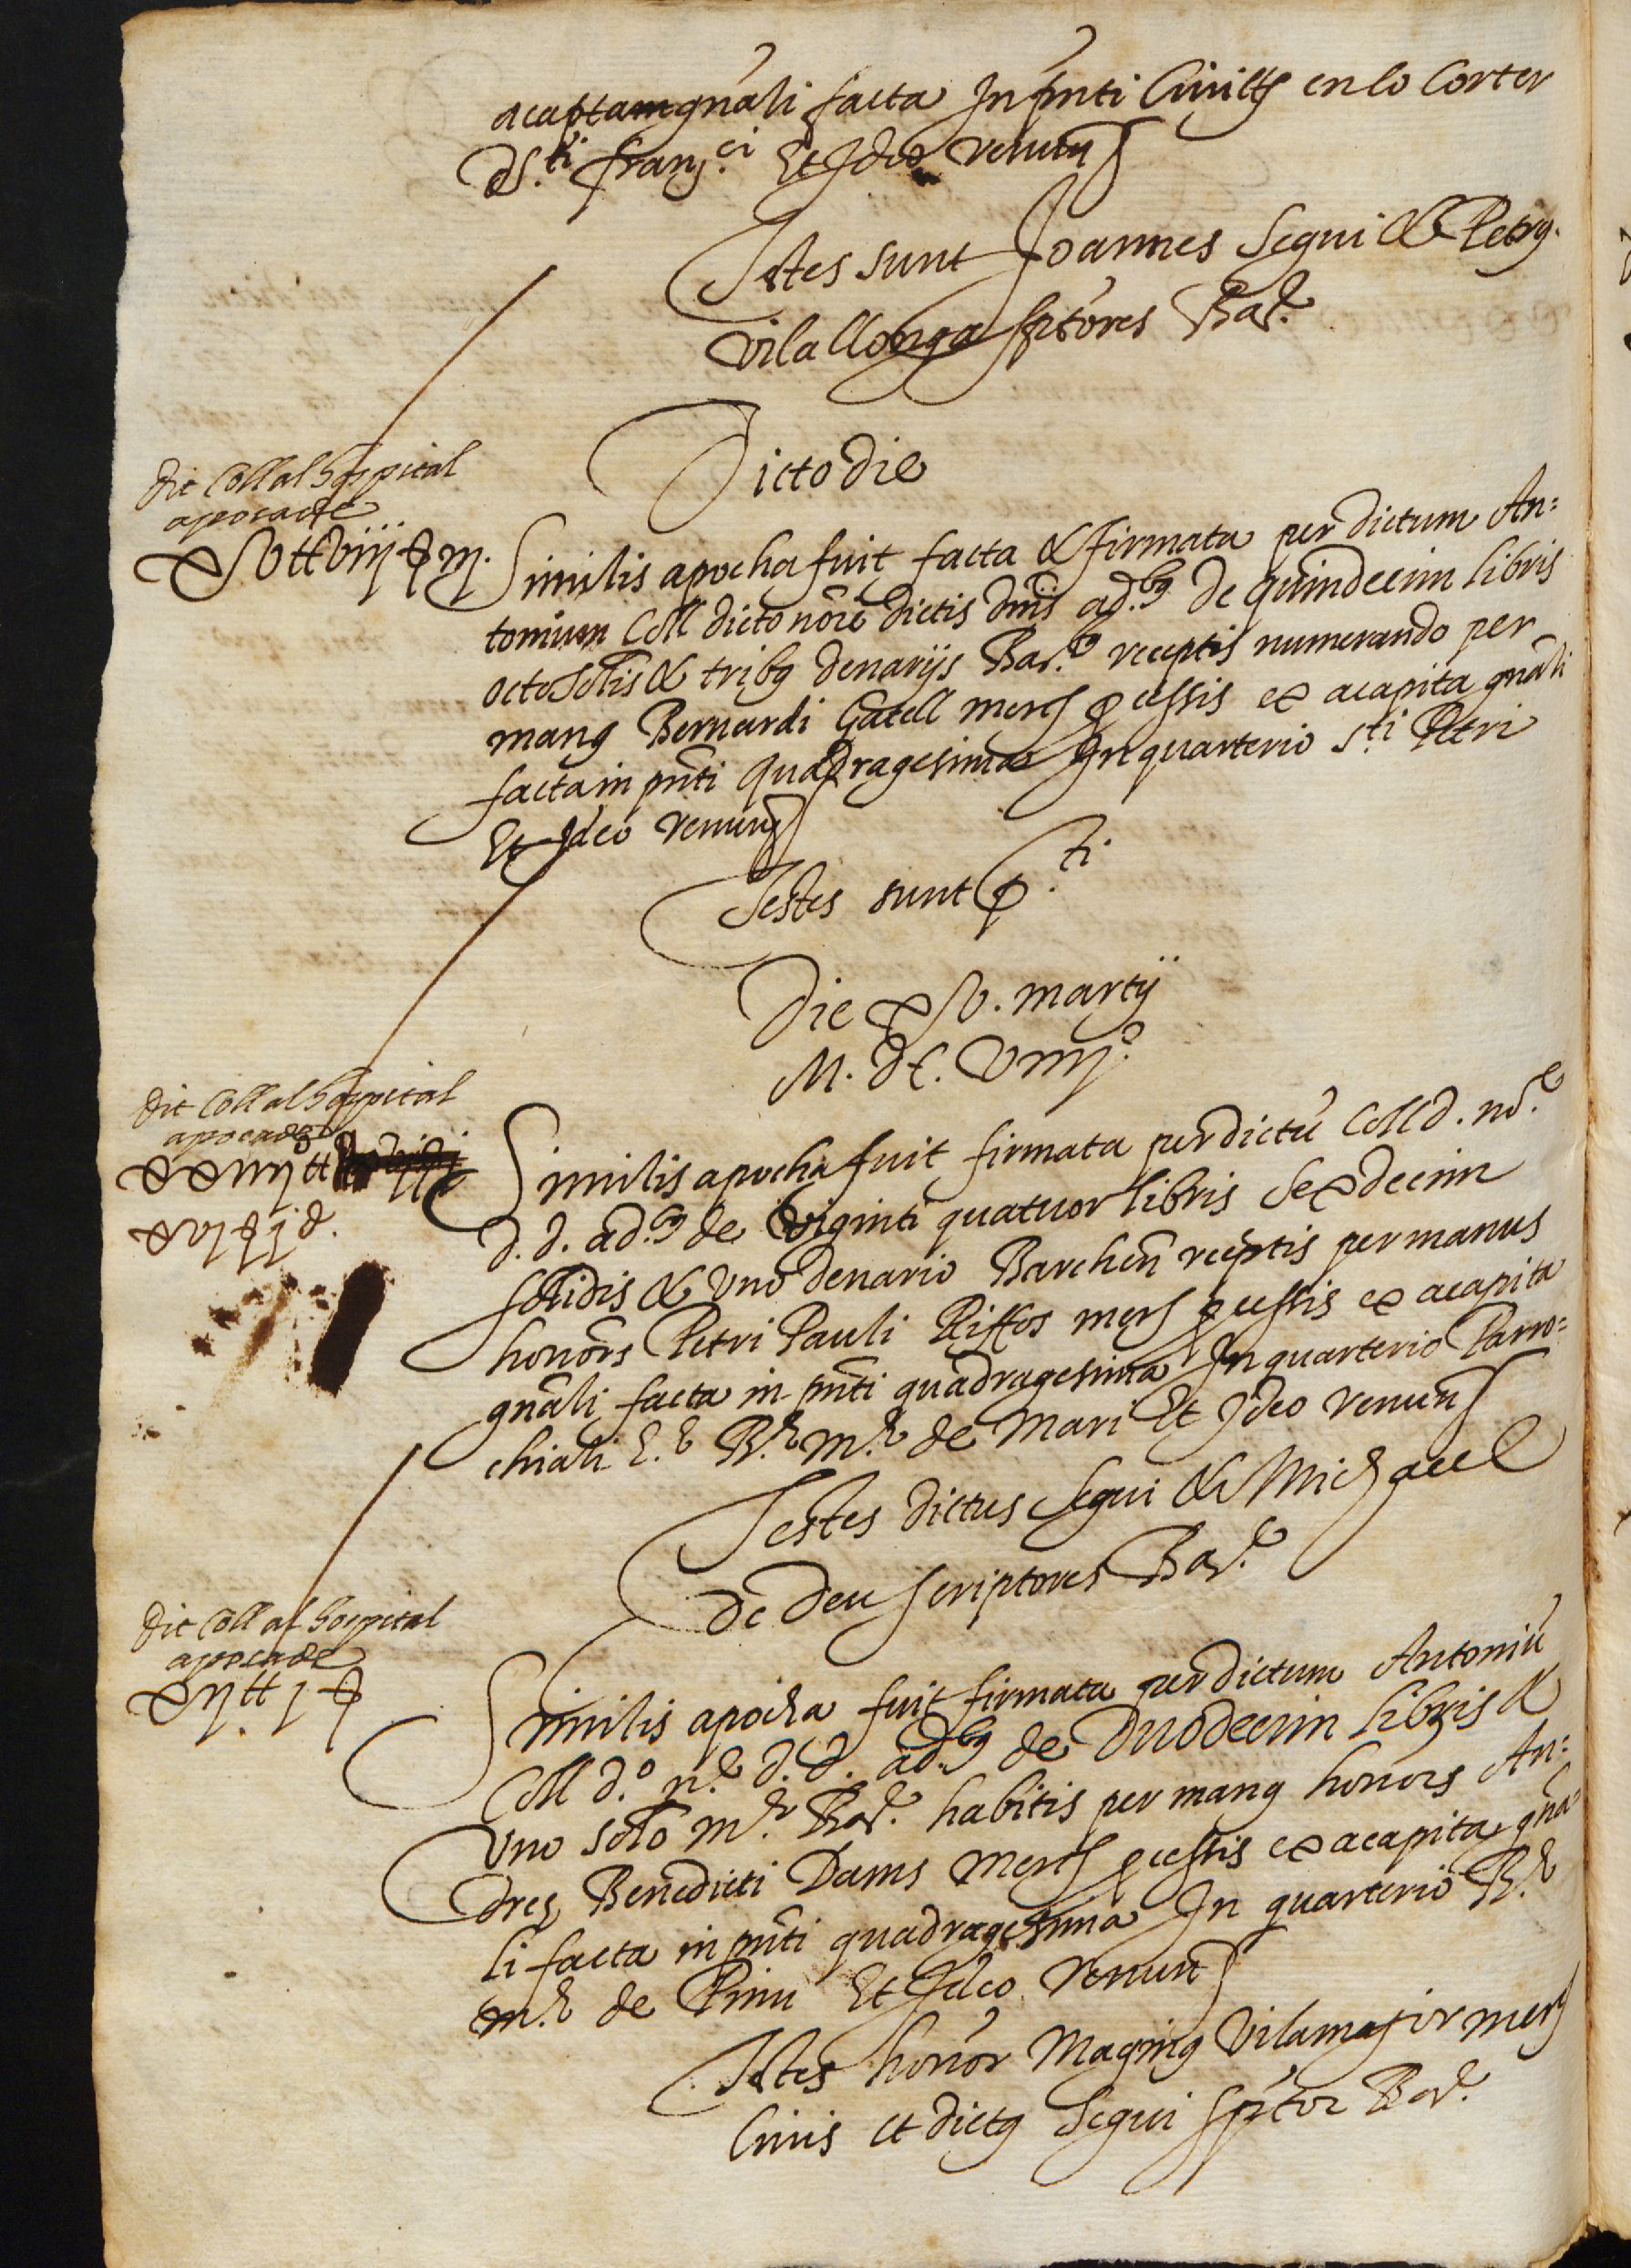 acaptam gnãli facta In pnti Civitts en lo Corter
d S.ti Franj.ci Et Ideo renuns
Testes sunt Joannes Segui & Petrq.
Vilallonga sptõres Bar.e
Dicto die
dit Coll al hospital
apoca de
xv tt viij s iij.
Similis apocha fuit facta & firmata per dictum An=
tonium Coll dicto nõre dictis dnis ad.bq de quindecim libris
octo solis & tribq denarijs Bar.e receptis numerando per
manq Bernardi Gatell merc pcessis ex acapita gnãli
facta in pnti quadragesima In quarterio s.ti Petri
Et Ideo renuns
Testes sunt p.ti
Die xv. martij
M. dC. viiij.o
dit Coll al hospital
apoca de
xxiiij tt
xvj s j d.
Similis apocha fuit firmata per dictũ Coll d. nõ.e
d. d. ad.bq de viginti quatuor libris sexdecim
solidis & uno denario Barchen receptis per manus
honors Petri Pauli Riffos merc pcessis ex acapita
gnãli facta in pnti quadragesima In quarterio Parro=
chiali E.e B.e M.e de Mari Et Ideo renuns
Testes dictus Segui & Michael
de Deu scriptores Bar.e
dit Coll al hospital
apoca de
xij tt j s
Similis apocha fuit firmata per dictum Antoniũ
Coll d.o n.e d. d. ad.bq de duodecim libris &
uno solo m.e Bar.e habitis per manq honors An=
dreq Benedicti Dams merc pcessis ex acapita gnã
li facta in pnti quadragesima In quarterio B.e
M.e de Pinu Et Ideo renuns
Testes honor Maginq Vilamajor merc
Civis et dictq Segui sptor Bar.e